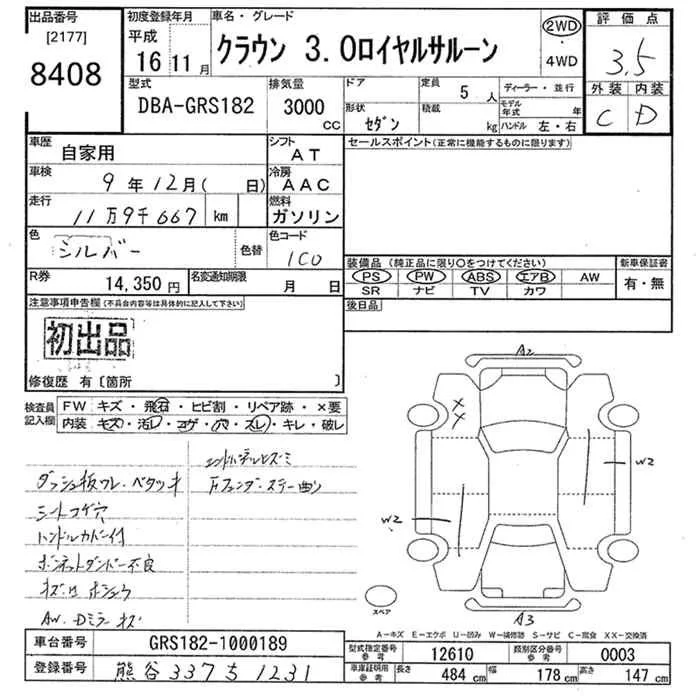 出品番号
[2177]
8408
初度登録年月
平成
16 11月
車名・グレード
クラウン 3.0ロイヤルサルーン
2WD
・
4WD
評価点
3.5
外装 内装
C D
型式
DBA-GRS182
排気量
3000
CC
ドア
形状
セダン
定員
5 人
積載
kg
ディーラー・並行
モデル年式 年
ハンドル 左・右
車歴
自家用
シフト
AT
車検
9年12月( 日)
冷房
AAC
走行
11万9千667 km
燃料
ガソリン
色
シルバー
色替
色コード
1C0
R券
14,350円
名変通知期限
月 日
セールスポイント(正常に機能するものに限ります)
装備品(純正品に限り○をつけてください)
PS PW ABS エアB AW
SR ナビ TV カワ
新車保証書
有・無
後日品
注意事項申告欄(不具合内容等は具体的に記入して下さい)
初出品
修復歴 有〔箇所 〕
検査員記入欄
FW キズ・飛石・ヒビ割・リペア跡・×要
内装 キズ・汚レ・コゲ・穴・スレ・キレ・破レ
ダッシュ板ワレ・ベタツキ
シートコゲ穴
ハンドルカバー付
ボンネットダンパー不良
AW.Dミラーキズ
A2
W2
W2
A3
スペア
A－キズ E－エクボ U－凹み W－補修跡 S－サビ C－腐食 XX－交換済
車台番号
GRS182-1000189
登録番号
熊谷 337 ち 1231
型式指定番号
参考
12610
類別区分番号
参考
0003
車庫証明用
参考
長さ
484 cm
幅
178 cm
高さ
147 cm